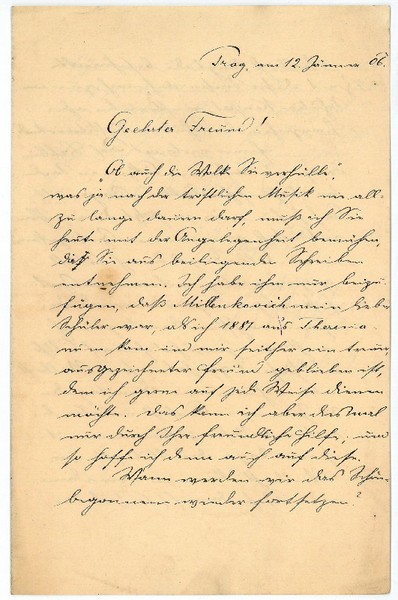 Prag, am 12. Jänner 06.
Geehrter Freund!
"Ob auch die Wolke Sie verhülle",
was ja nach der tröstlichen Musik nie all-
zu lange dauern darf, muß ich Sie
heute mit der Angelegenheit bemühen,
daß Sie aus beiliegendem Schreiben
entnehmen. Ich habe ihm nur beizu-
fügen, daß Millenkovich mein lieber
Schüler war, als ich 1887 aus Theresia-
num kam und mir seither ein treuer,
ausgezeichneter Freund geblieben ist,
dem ich gerne auf jede Weise dienen
möchte. Das kann ich aber diesmal
nur durch Ihre freundliche Hilfe, und
so hoffe ich denn auch auf diese.
Wann werden wir das Schön-
begonnene wieder fortsetzen?